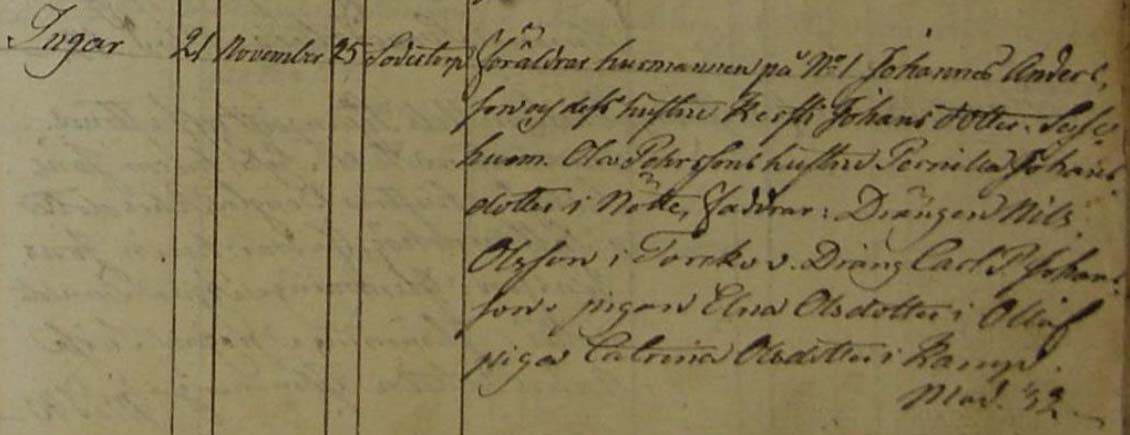 Ingar 21 November 25 Söderstorp Föräldrar husmannen på No 1 Johannes Anders,
son och dess hustru Kersti Johansdotter.
husm. Ola Pehrssons hustru Pernilla Johans
dotter i Nötte, Faddrar: Drängen Nils
Olsson i Torekov. Dräng Carl P. Johans
son pigan Elna Olsdotter i
piga Catrina Olsdotter i Ramp.
Mod. 32